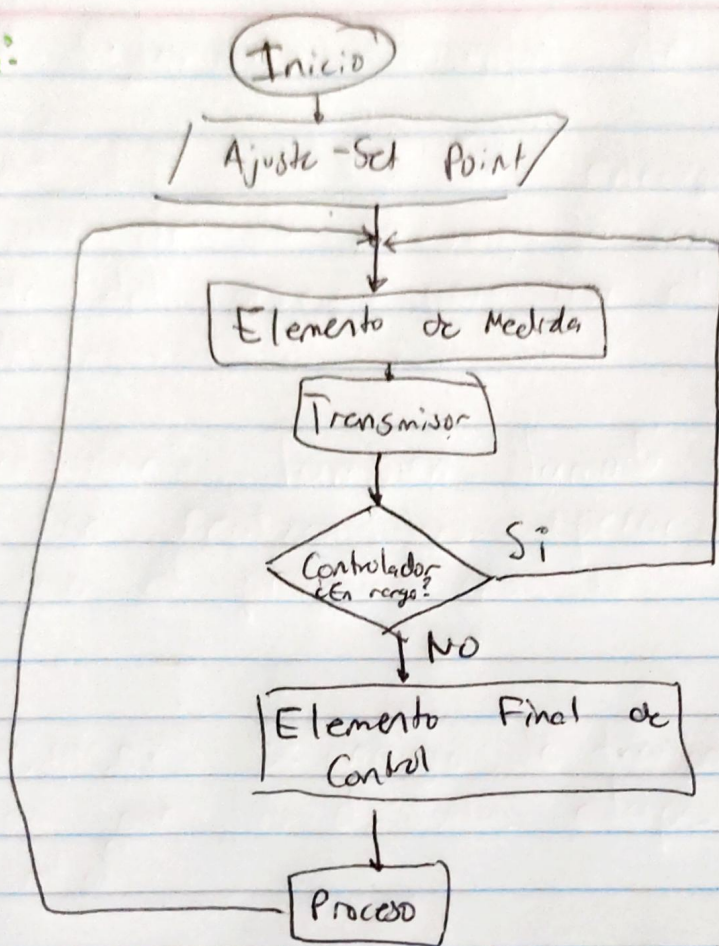 Inicio
Ajuste - Set Point
Elemento de Medida
Transmisor
Controlador
¿En rango?
Si
NO
Elemento Final de
Control
Proceso